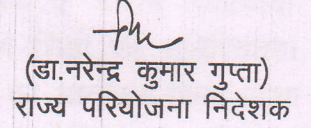 (डा.नरेन्द्र कुमार गुप्ता)
राज्य परियोजना निदेशक